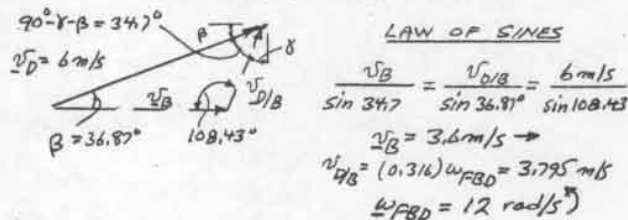 90°-γ-β = 34.7°
β
γ
v_D = 6 m/s
v_B
v_D/B
β = 36.87°
108.43°
LAW OF SINES
v_B / sin 34.7 = v_D/B / sin 36.87° = 6 m/s / sin 108.43
v_B = 3.6 m/s →
v_D/B = (0.316) ω_FBD = 3.795 m/s
ω_FBD = 12 rad/s ↺